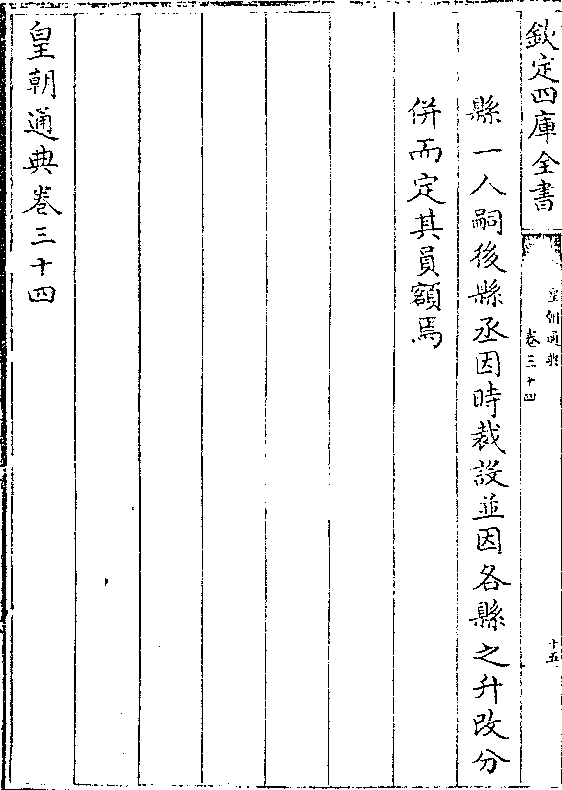 欽定四庫全書
皇朝通典
卷三十四
十五
縣一人嗣後縣丞因時裁設並因各縣之升改分
併而定其員額焉
皇朝通典卷三十四